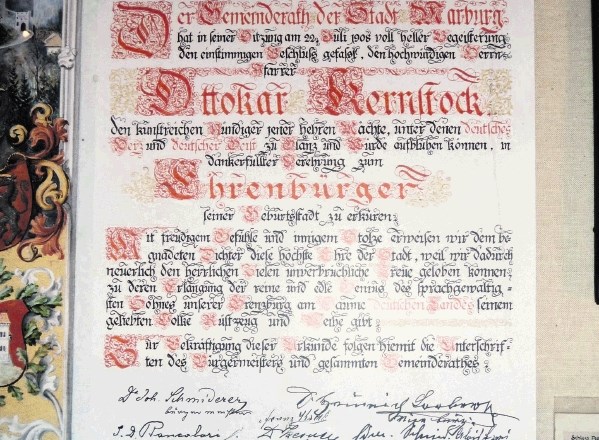 Der Gemeinderath der Stadt Marburg
hat in seiner Sitzung am 22. Juli 1908 voll heller Begeisterung
den einstimmigen Beschluß gefaßt, den hochwürdigen Herrn
Pfarrer
Ottokar Kernstock
den kunstreichen Kündiger jener hehren Mächte, unter denen deutsches
Herz und deutscher Geist zu Glanz und Würde aufblühen können, in
dankerfüllter Verehrung zum
Ehrenbürger
seiner Geburtsstadt zu erküren.
Mit freudigem Gefühle und innigem Stolze erweisen wir dem be-
gnadeten Dichter diese höchste Ehre der Stadt, weil wir dadurch
neuerlich den herrlichen Zielen unverbrüchliche Treue geloben können,
zu deren Erlangung der reine und edle Genius des sprachgewaltig-
sten Sohnes unserer Grenzburg am Saume deutschen Landes seinem
geliebten Volke Rüstzeug und Weihe gibt.
Zur Bekräftigung dieser Urkunde folgen hiemit die Unterschrif-
ten des Bürgermeisters und gesammten Gemeinderathes.
Dr Joh. Schmiderer
bürgermeister